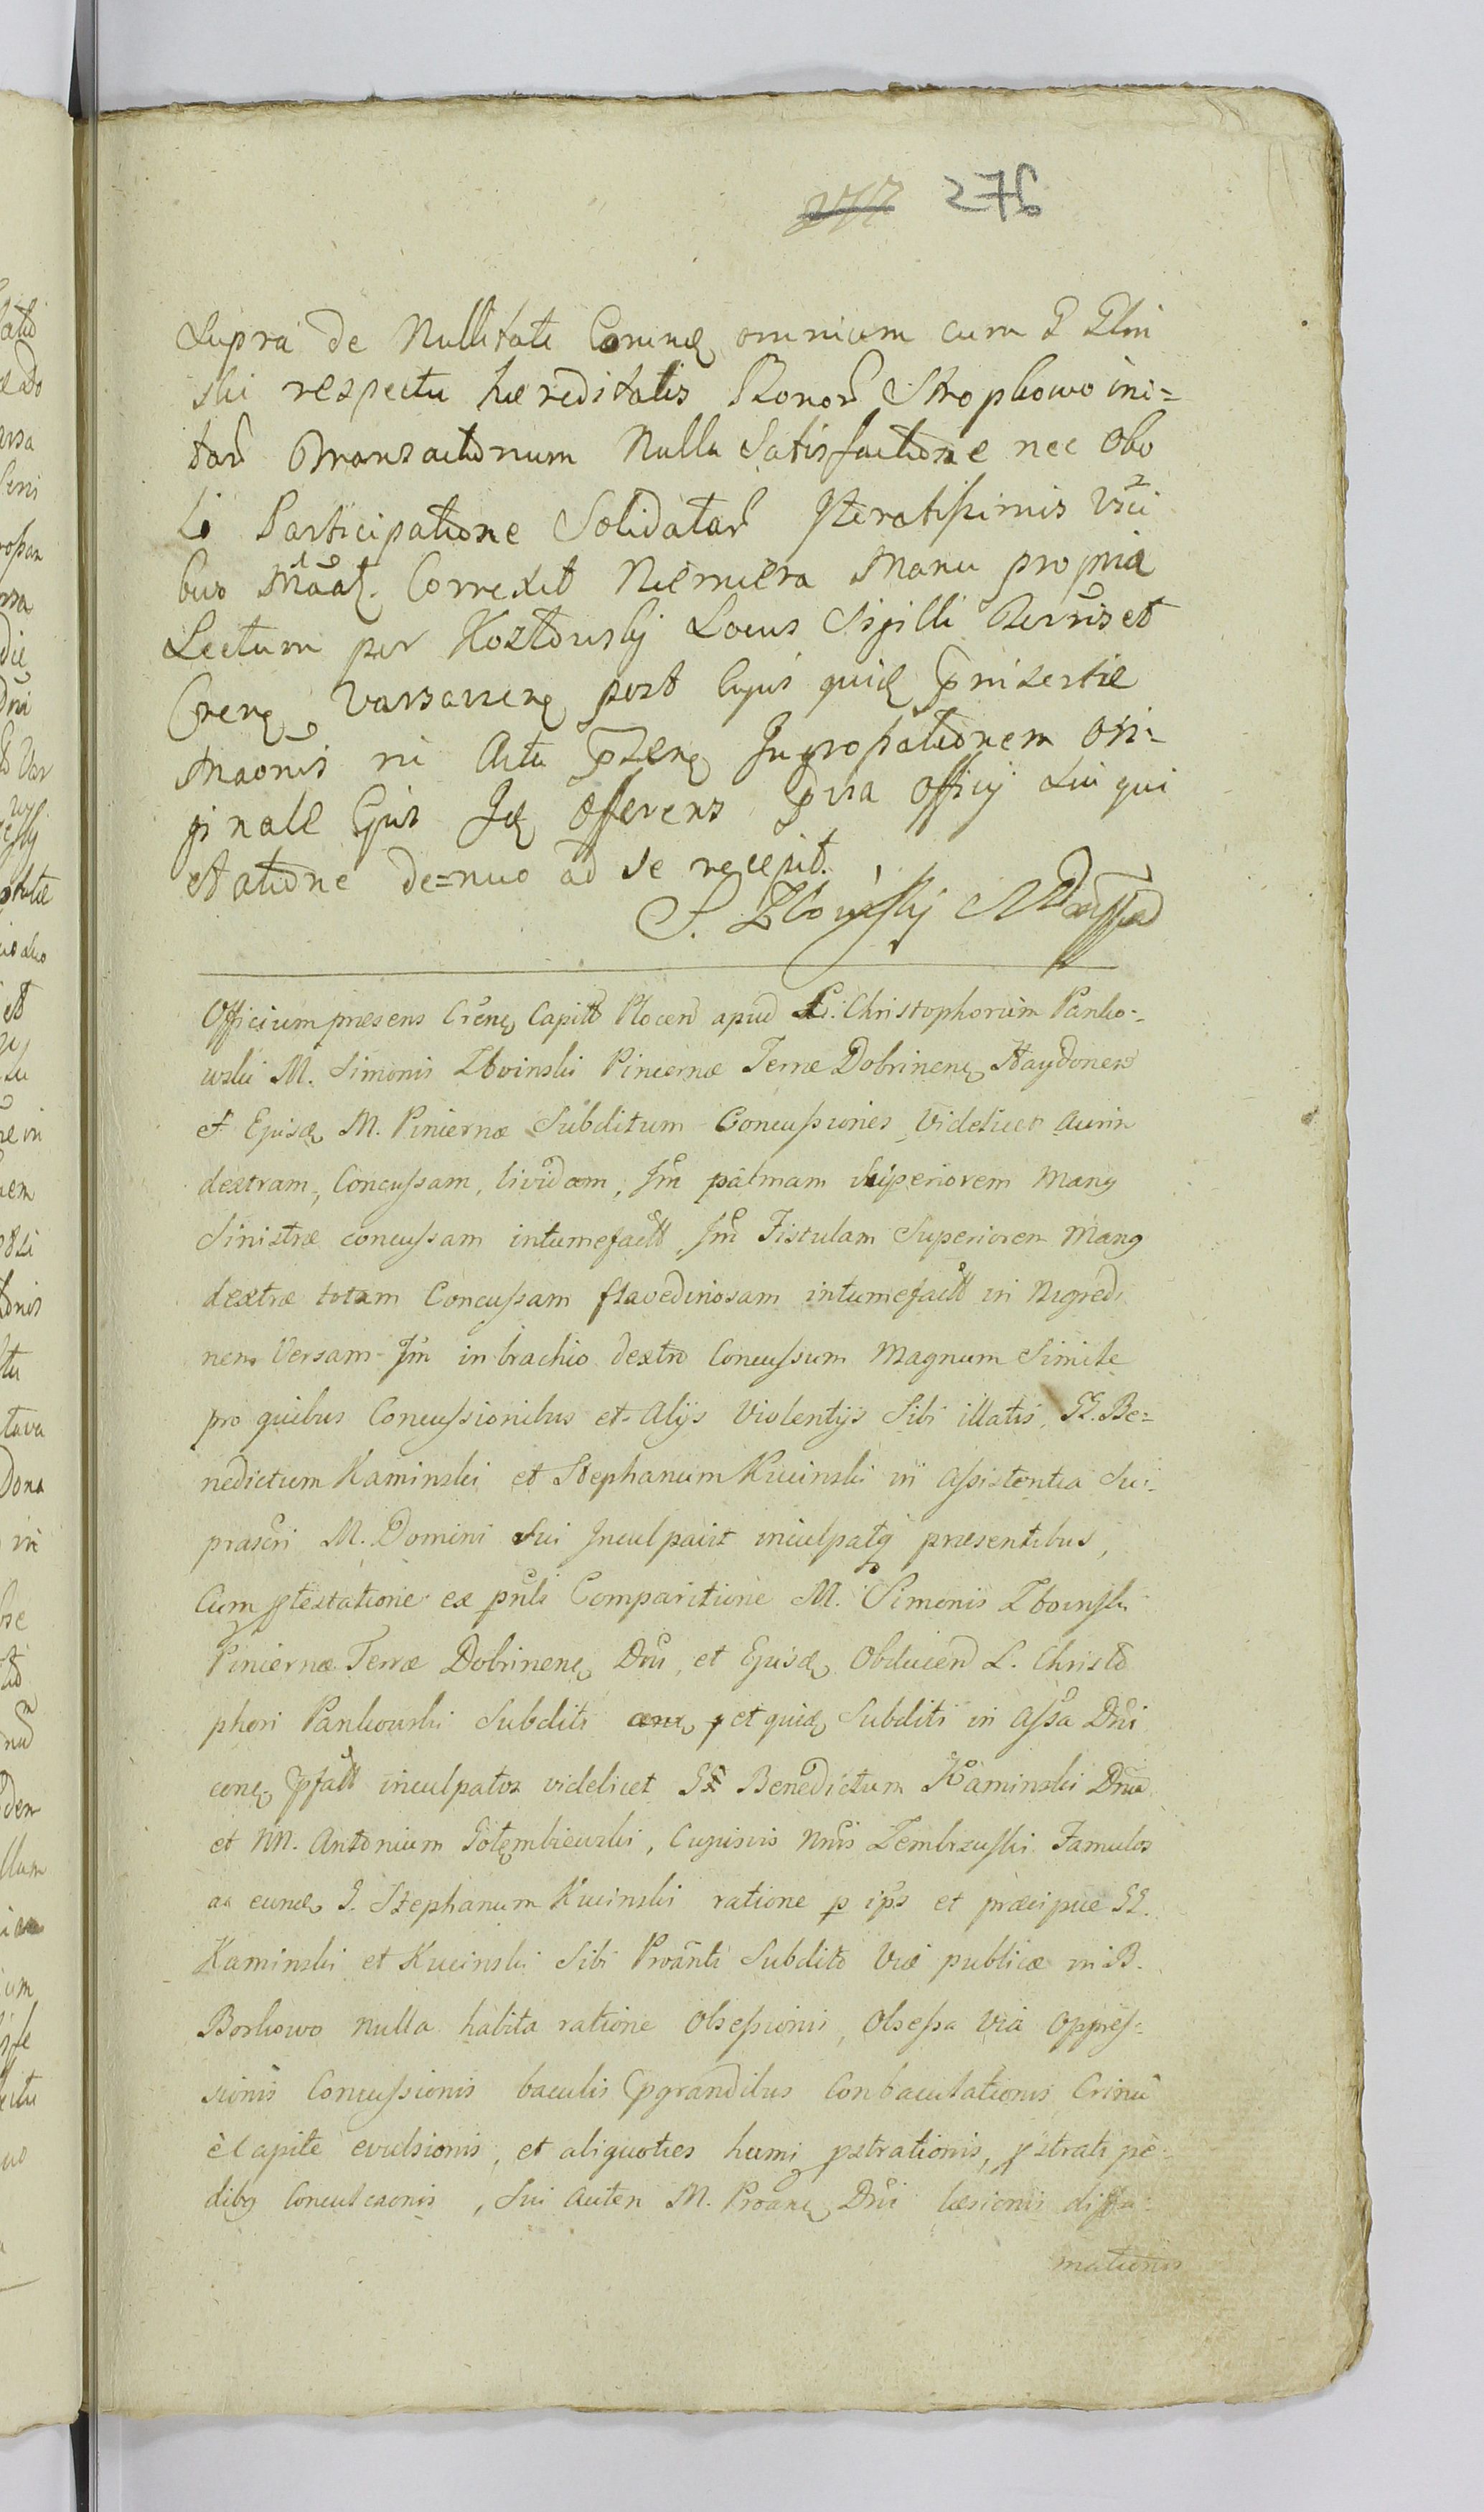 277 276
Supra de Nullitate omnium cum G Plin
ski respectu hæreditatis Bonor Stropkowo ini=
tar Transactionum Nulla Satisfactione nec Obo
li Participatione Solidatar Iteratissimis
bus Correxit Niemiera Manu propria
Lectum per Kosztowskj Locus Sigilli et
Varsavien post Cujus quid
in Acta Ingrossationem Ori=
ginale Ejus Id Offerens Officij Sui qui
etatione de=nuo ad se recepit.
S. Zboinskj
Officium præsens Capit Plocen apud L. Christophorum Panko=
wski M. Simonis Zboinski Pincernæ Terræ Dobrinen Haydonem
et Ejusd M. Pincernæ Subditum Concussiones, Videlicet Aurim
dextram, Concussam, lividam, Itm palmam superiorem Many
Sinistræ concussam intumefactt Itm Fistulam Superiorem Many
dextræ totam Concussam flavedinosam intumefactt in Nigredi
nem Versam Itm in brachio dextro Concussum Magnum Simile
pro quibus Concussionibus et Alijs Violentijs Sibi illatis GG. Be=
nedictum Kaminski et Stephanum Kucinski in Assistentia Su=
prascri M. Domini Sui Inculpavit inculpatq præsentibus,
Cum ptestatione ex pnti Comparitione M. Simonis Zboinski
Pincernæ Terræ Dobrinen Dni, et Ejusd Obducen L. Christo
phori Pankowski Subditi et quid Subditi in Assa Dni
inculpatos videlicet GG Benedictum Kaminski
et NN. Antonium Gołembiewski, Cujusvis Nnis Zembrzuski Famulos
ac eund G. Stephanum Kucinski ratione p ips et præcipue GG.
Kaminski et Kucinski Sibi Proanti Subdito Viæ publicæ in B.
Borkowo nulla habita ratione Obsessionis, Obsessa Via Oppres=
sionis Concussionis baculis pgrandibus Conbaculationis Crinu
è Capite evulsionis, et aliquoties humi pstrationis, pstrati pe=
diby Conculcaonis, Sui Autem M. Proan Dni læsionis diffa=
mationis